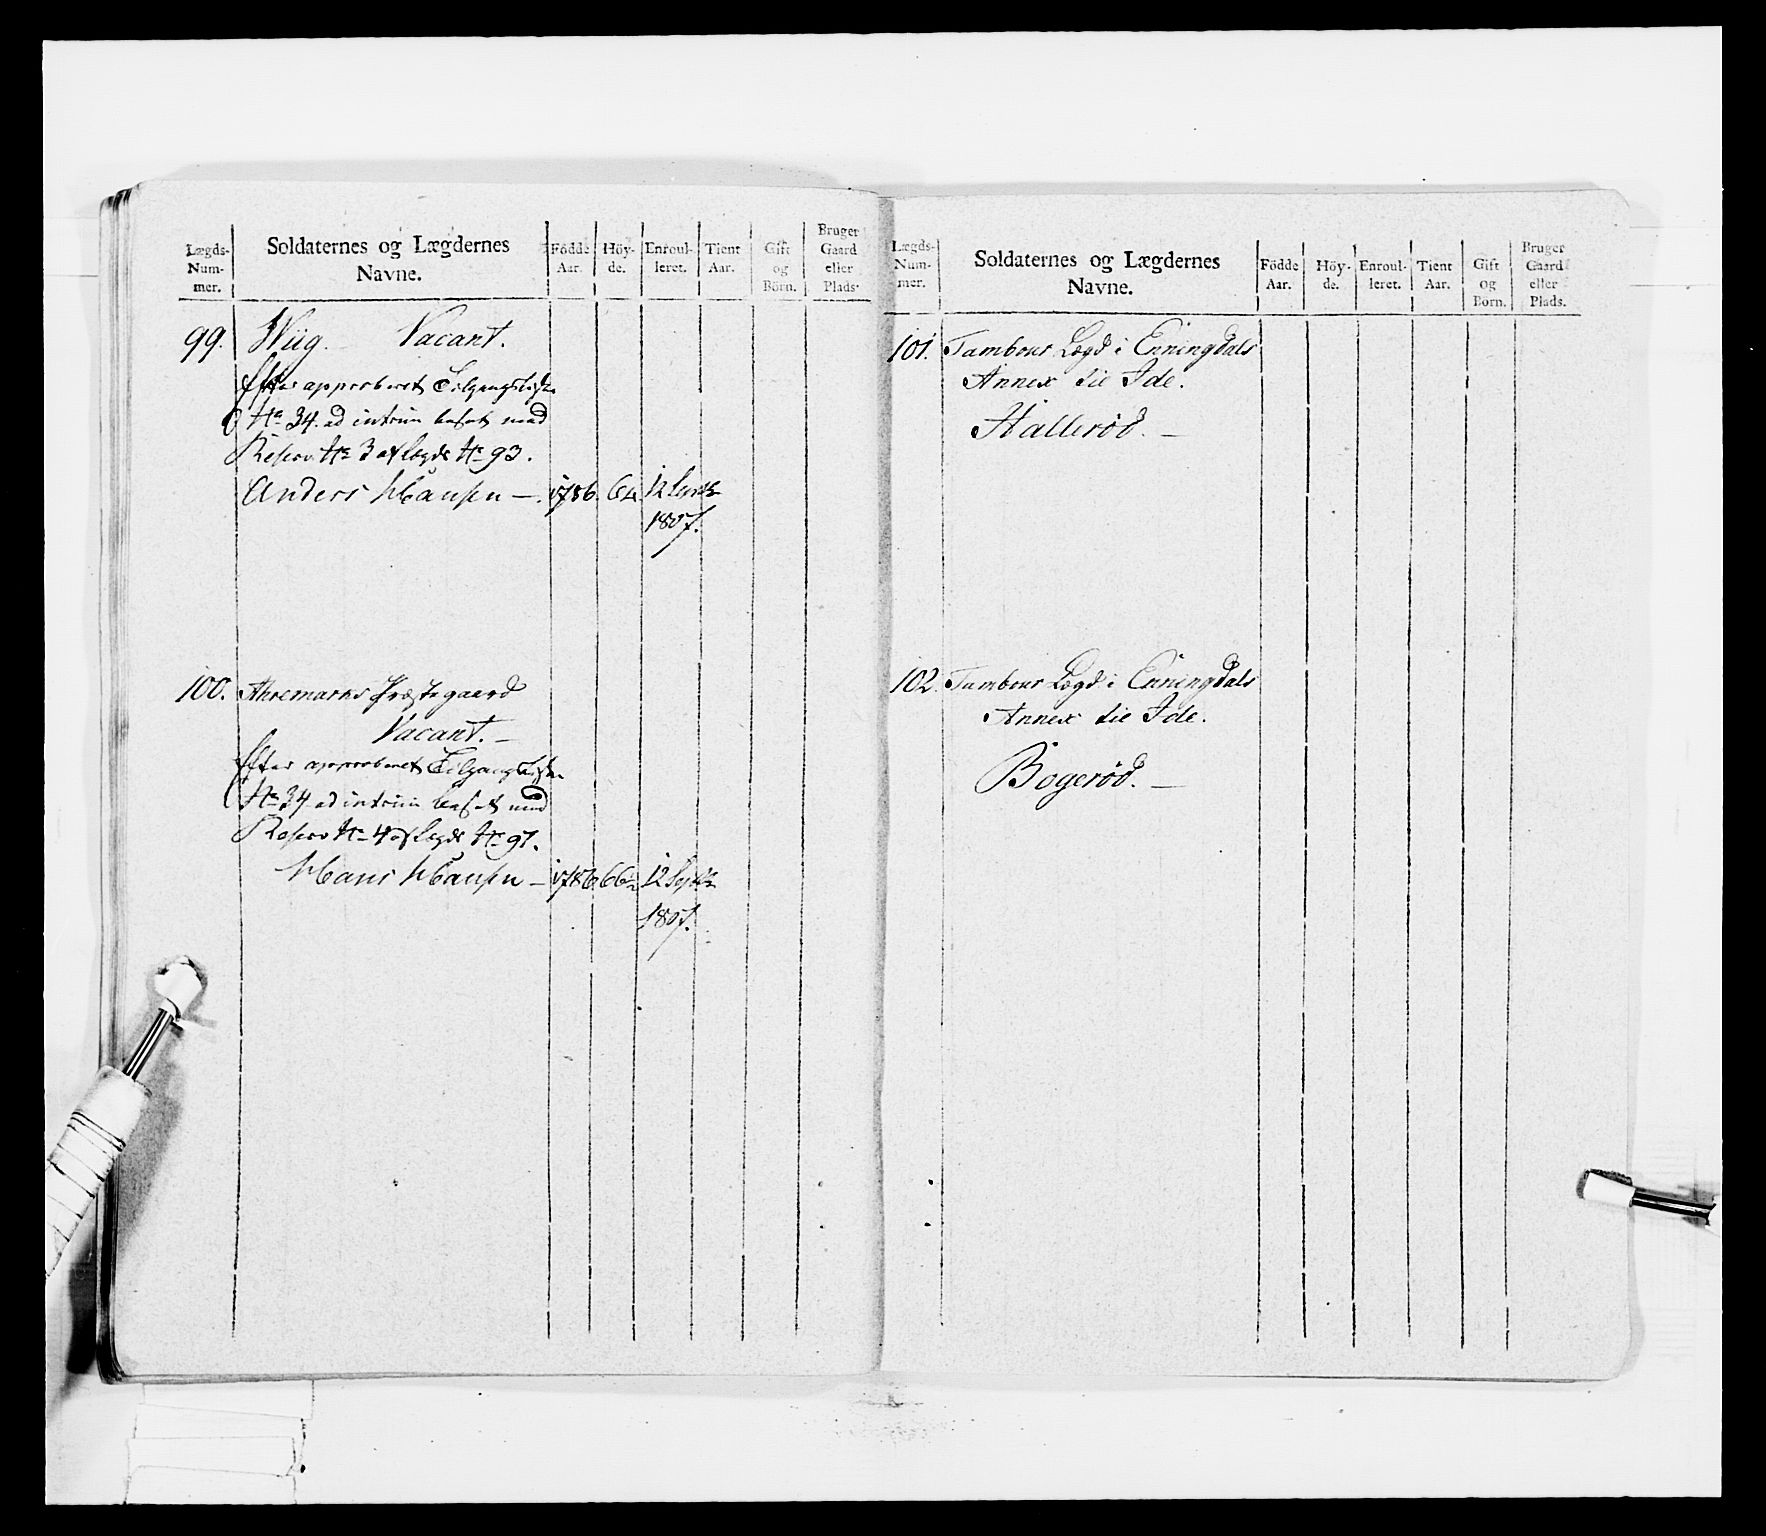 Lægds-
Num-
mer.
Soldaternes og Lægdernes
Navne.
Födde
Aar.
Höy-
de.
Enroul-
leret.
Tient
Aar.
Gift
og
Börn.
Bruger
Gaard
eller
Plads.
99. Wiig. Vacant.
Efter approberet Tilgangsliste
No 34. ad interim besat med
Reserv No 3 af Lægds No 93.
Anders Hansen —. 1786. 64. 12 Septb
1807.
100. Ahremarks Præstegaard
Vacant. —
Efter approberet Tilgangsliste
No 34 ad interim besat med
Reserv No 4 af Lægds No 97.
Hans Hansen — 1786 66½ 12 Septb
1807.
Lægds-
Num-
mer.
Soldaternes og Lægdernes
Navne.
Födde
Aar.
Höy-
de.
Enroul-
leret.
Tient
Aar.
Gift
og
Börn.
Bruger
Gaard
eller
Plads.
101. Tambour Lægd i Enningdals
Annex til Ide.
Hallerød. —
102. Tambour Lægd i Enningdals
Annex til Ide.
Bogerød. —